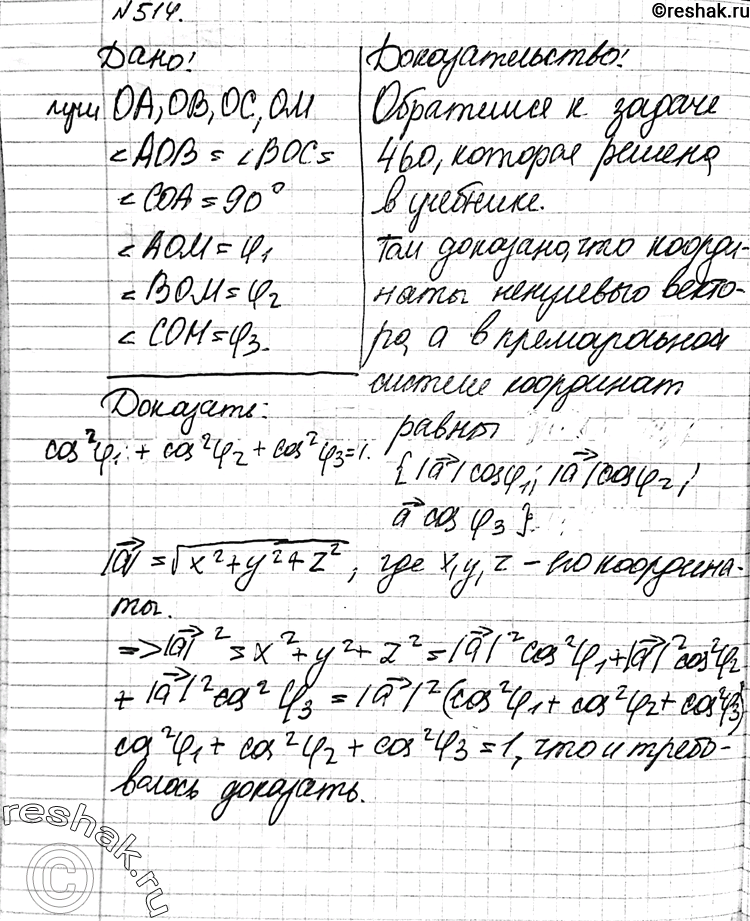 ©reshak.ru
№514.
Дано:
лучи OA, OB, OC, OM
∠AOB = ∠BOC =
∠COA = 90°
∠AOM = φ1
∠BOM = φ2
∠COM = φ3.
Доказать:
cos²φ1 + cos²φ2 + cos²φ3 = 1.
Доказательство:
Обратимся к задаче
460, которая решена
в учебнике.
Там доказано, что коорди-
наты ненулевого векто-
ра a в прямоугольной
системе координат
равны
{|a⃗| cosφ1; |a⃗| cosφ2;
a⃗ cos φ3}.
|a⃗| = √(x²+y²+z²), где x, y, z – его координа-
ты.
=> |a⃗|² = x² + y² + z² = |a⃗|² cos²φ1 + |a⃗|² cos²φ2
+ |a⃗|² cos² φ3 = |a⃗|² (cos²φ1 + cos²φ2 + cos²φ3)
cos²φ1 + cos²φ2 + cos²φ3 = 1, что и требо-
валось доказать.
reshak.ru
©